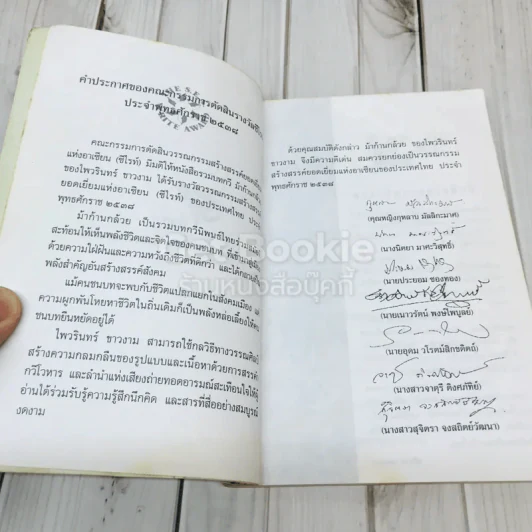 คำประกาศของคณะกรรมการตัดสินรางวัลซีไรท์
ประจำพุทธศักราช ๒๕๓๘
คณะกรรมการตัดสินวรรณกรรมสร้างสรรค์ยอดเยี่ยม
แห่งอาเซียน (ซีไรท์) มีมติให้หนังสือรวมบทกวี ม้าก้านกล้วย
ของ ไพวรินทร์ ขาวงาม ได้รับรางวัลวรรณกรรมสร้างสรรค์
ยอดเยี่ยมแห่งอาเซียน (ซีไรท์) ของประเทศไทย ประจำ
พุทธศักราช ๒๕๓๘
ม้าก้านกล้วย เป็นรวมบทกวีนิพนธ์ไทยร่วมสมัย
สะท้อนให้เห็นพลังชีวิตและจิตใจของคนชนบท ที่เข้ามาสู่เมือง
ด้วยความใฝ่ฝันและความหวังถึงชีวิตที่ดีกว่า และได้กลาย
พลังสำคัญอันสร้างสรรค์สังคม
แม้คนชนบทจะพบกับชีวิตแปลกแยกในสังคมเมือง แต่
ความผูกพันโหยหาชีวิตในถิ่นเดิมก็เป็นพลังหล่อเลี้ยงให้คน
ชนบทยืนหยัดอยู่ได้
ไพวรินทร์ ขาวงาม สามารถใช้กลวิธีทางวรรณศิลป์
สร้างความกลมกลืนของรูปแบบและเนื้อหาด้วยการสรรค์
กวีโวหาร และลำนำแห่งเสียงถ่ายทอดอารมณ์สะเทือนใจให้ผู้
อ่านได้ร่วมรับรู้ความรู้สึกนึกคิด และสารที่สื่ออย่างสมบูรณ์
งดงาม
ด้วยคุณสมบัติดังกล่าว ม้าก้านกล้วย ของไพวรินทร์
ขาวงาม จึงมีความดีเด่น สมควรยกย่องเป็นวรรณกรรม
สร้างสรรค์ยอดเยี่ยมแห่งอาเซียนของประเทศไทย ประจำ
พุทธศักราช ๒๕๓๘
(คุณหญิงกุหลาบ มัลลิกะมาส)
(นางนิตยา มาศะวิสุทธิ์)
(นายประยอม ซองทอง)
(นายเนาวรัตน์ พงษ์ไพบูลย์)
(นายอุดม วโรตม์สิกขดิตถ์)
(นางสาวจาตุรี ติงศภัทิย์)
(นางสาวสุจิตรา จงสถิตย์วัฒนา)
Bookie
ร้านหนังสือบุ๊คกี้